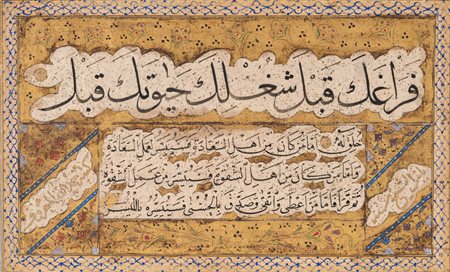 فراغك قبل شغلك حيوتك قبل
خلق له اما من كان من اهل السعادة فييسر لعمل السعادة
واما من كان من اهل الشقوة فييسر لعمل الشقوة
ثم قرأ فاما من اعطى واتقى وصدق بالحسنى فسنيسره لليسرى